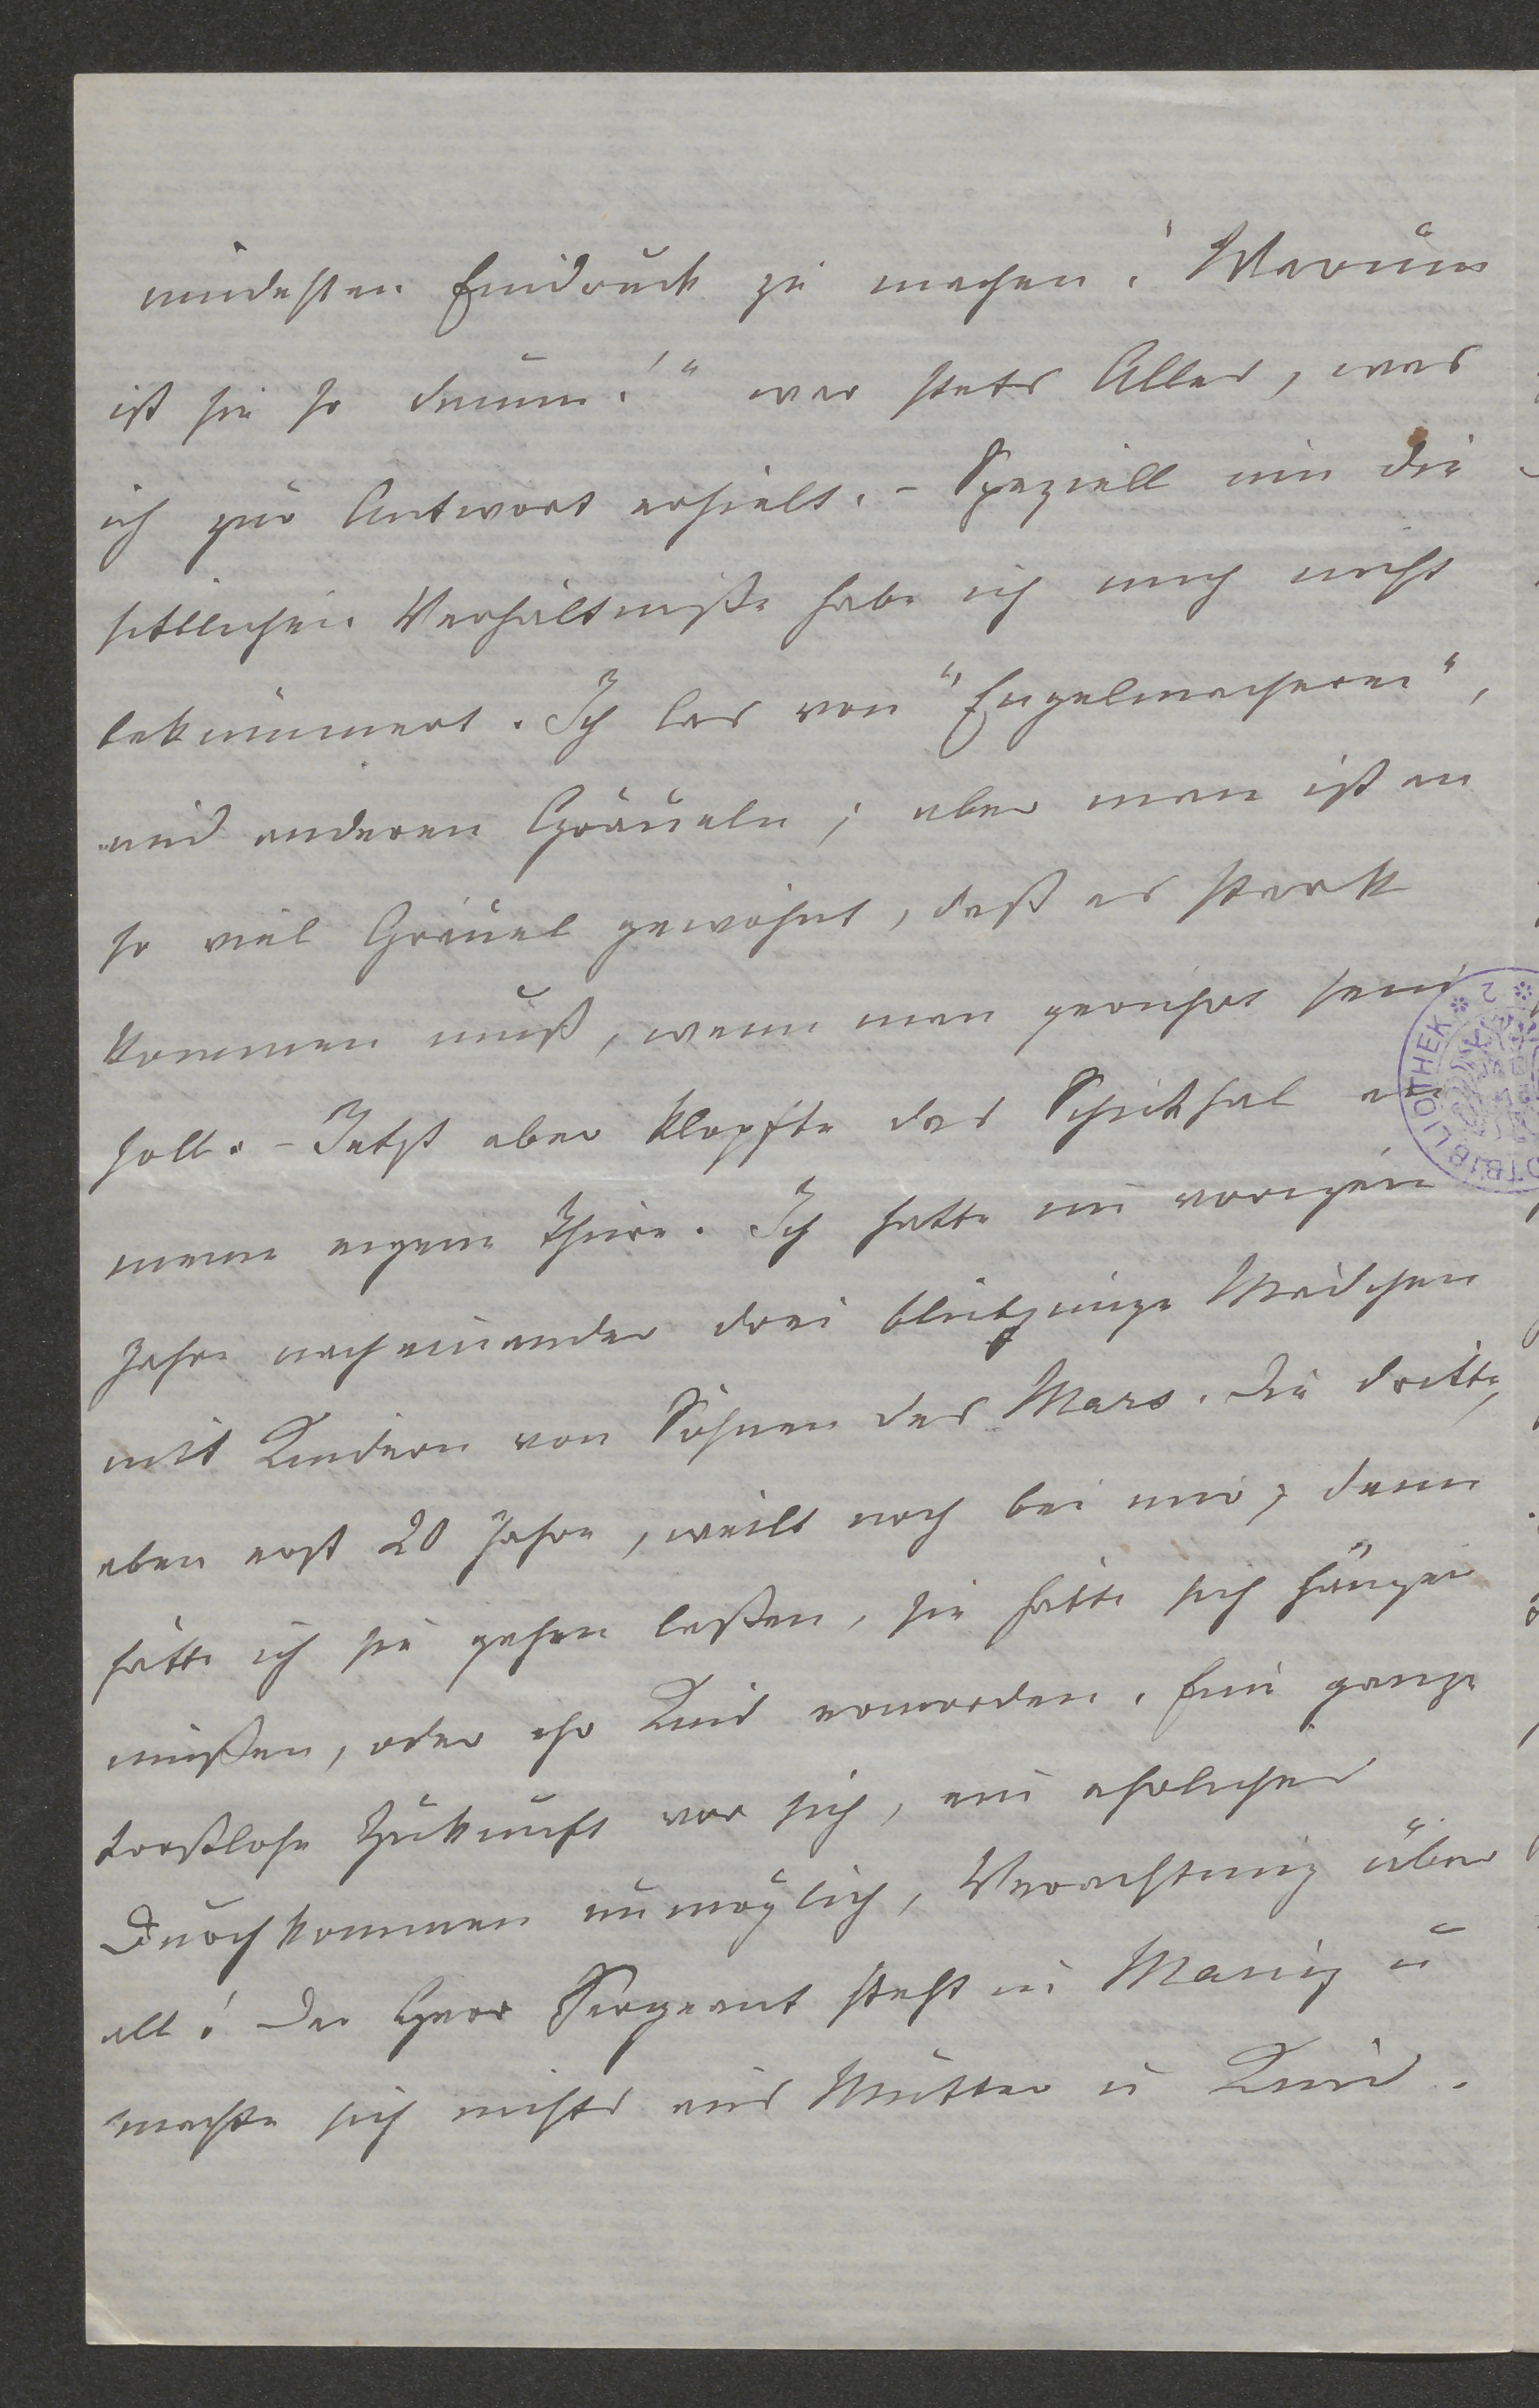 mindesten Eindruck zu machen. „Warum
ist sie so dumm!“ war stets Alles, was
ich zur Antwort erhielt. – Speziell um die
sittlichen Verhältniße habe ich mich nicht
bekümmert. Ich las von "Engelmacherei",
und anderen Gräueln; aber man ist an
so viel Gräuel gewöhnt, daß es stark
kommen muß, wenn man gerührt sein
soll. – Jetzt aber klopfte das Schicksal an
meine eigene Thüre. Ich hatte im vorigen
Jahre nacheinander drei blutjunge Mädchen
mit Kindern von Söhnen des Mars. Die dritte,
eben erst 20 Jahre, weilt noch bei mir; denn
hätte ich sie gehen laßen, sie hätte sich hängen
müßen, oder ihr Kind ermorden. Eine ganze
trostlose Zukunft vor sich, ein ehrliches
Durchkommen unmöglich, Verachtung über
all! Der Herr Sergeant steht in Mainz u
machte sich nichts aus Mutter u Kind.
BIBLIOTHEK